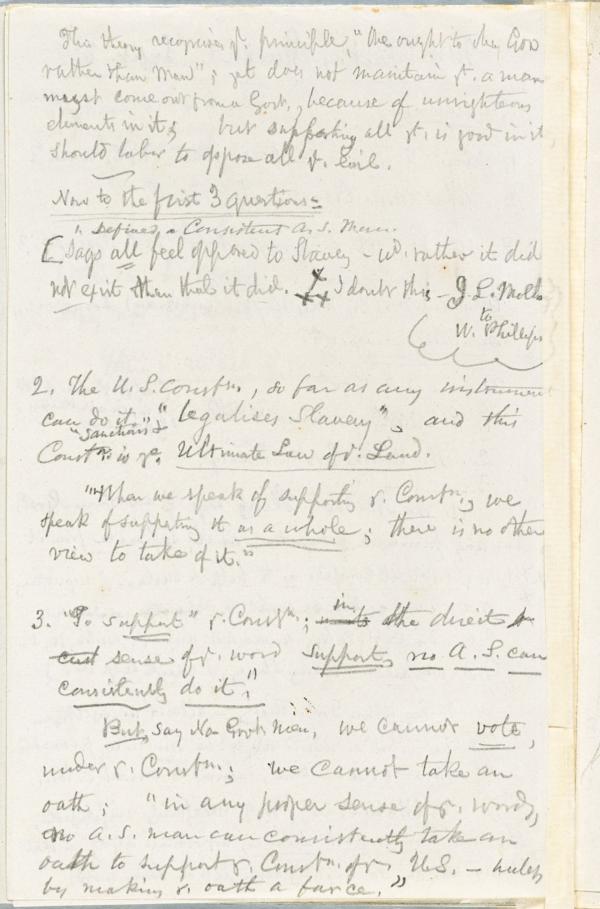 This theory recognises yt. principle, "One ought to obey God
rather than man"; yet does not maintain yt. a man
must come out from a Govt., because of unrighteous
elements in it; but supporting all yt. is good in it
should labor to oppose all yt. evil.
Now to the first 3 questions=
" Defined a Consistent A. S. Man.
[Says all feel opposed to Slavery - wd. rather it did
not exist than that it did. I doubt this - J. L.
to
W. Phillips
2. The U. S. Constn., so far as any instrument
can do it, "legalises Slavery", and this
"sanctions &
Constn. is ye. Ultimate Law of r. Land.
"When we speak of supporting r. Constn., we
speak of supporting it as a whole; there is no other
view to take of it."
3. "To support" r. Constn.; in to the direct
sense of r. word support, no A. S. can
consistently do it."
But, say No Govt. Men, we cannot vote,
under r. Constn.; we cannot take an
oath; "in any proper sense of r. words,
no A. S. man can consistently take an
oath to support r. Constn. of r. U.S. - unless
by making r. oath a farce."